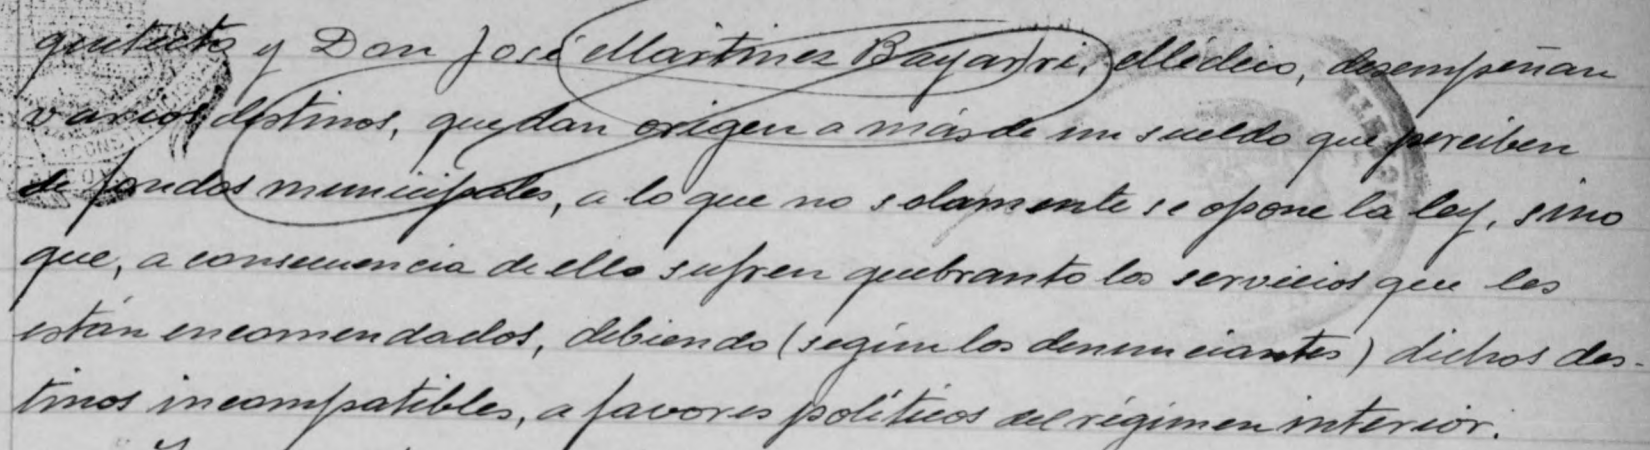 quitecto y Don José Martinez Bayarri, Médico, desempeñan
varios destinos, que dan origen a más de un sueldo que perciben
de fondos municipales, a lo que no solamente se opone la ley, sino
que, a consecuencia de ello sufren quebranto los servicios que les
están encomendados, debiendo (según los denunciantes) dichos des-
tinos incompatibles, a favores políticos del régimen interior.